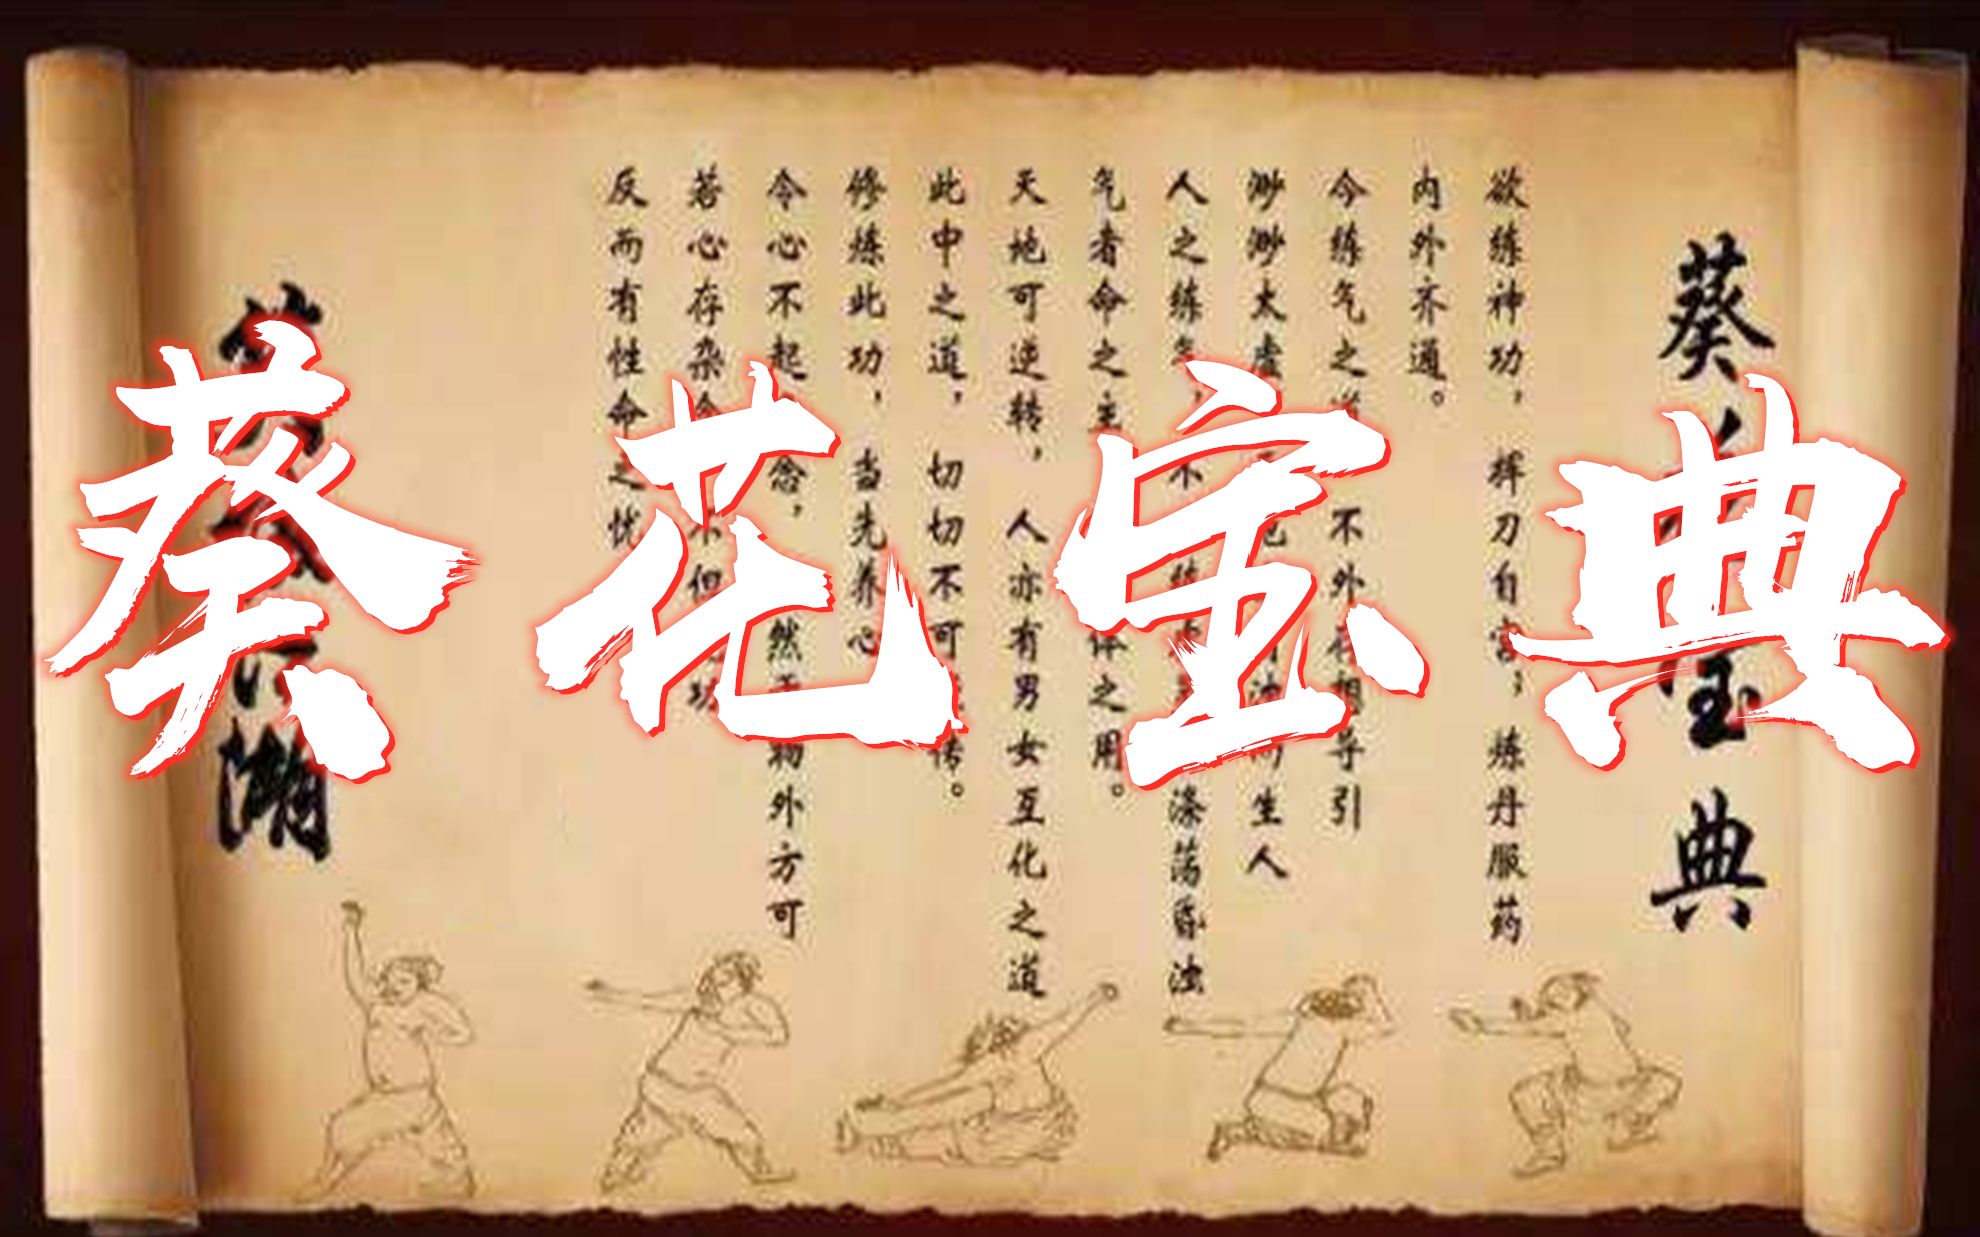 葵花宝典
葵 宝典
欲练神功，挥刀自宫；炼丹服药
内外齐通。
今练气之 不外 相导引
渺渺太虚 而生人
人之练气，不 涤荡昏浊
气者命之主 体之用。
天地可逆转，人亦有男女互化之道
此中之道，切切不可 传。
修炼此功，当先养心
令心不起 念， 然 物外方可
若心存杂念 不但 功
反而有性命之忧
潮